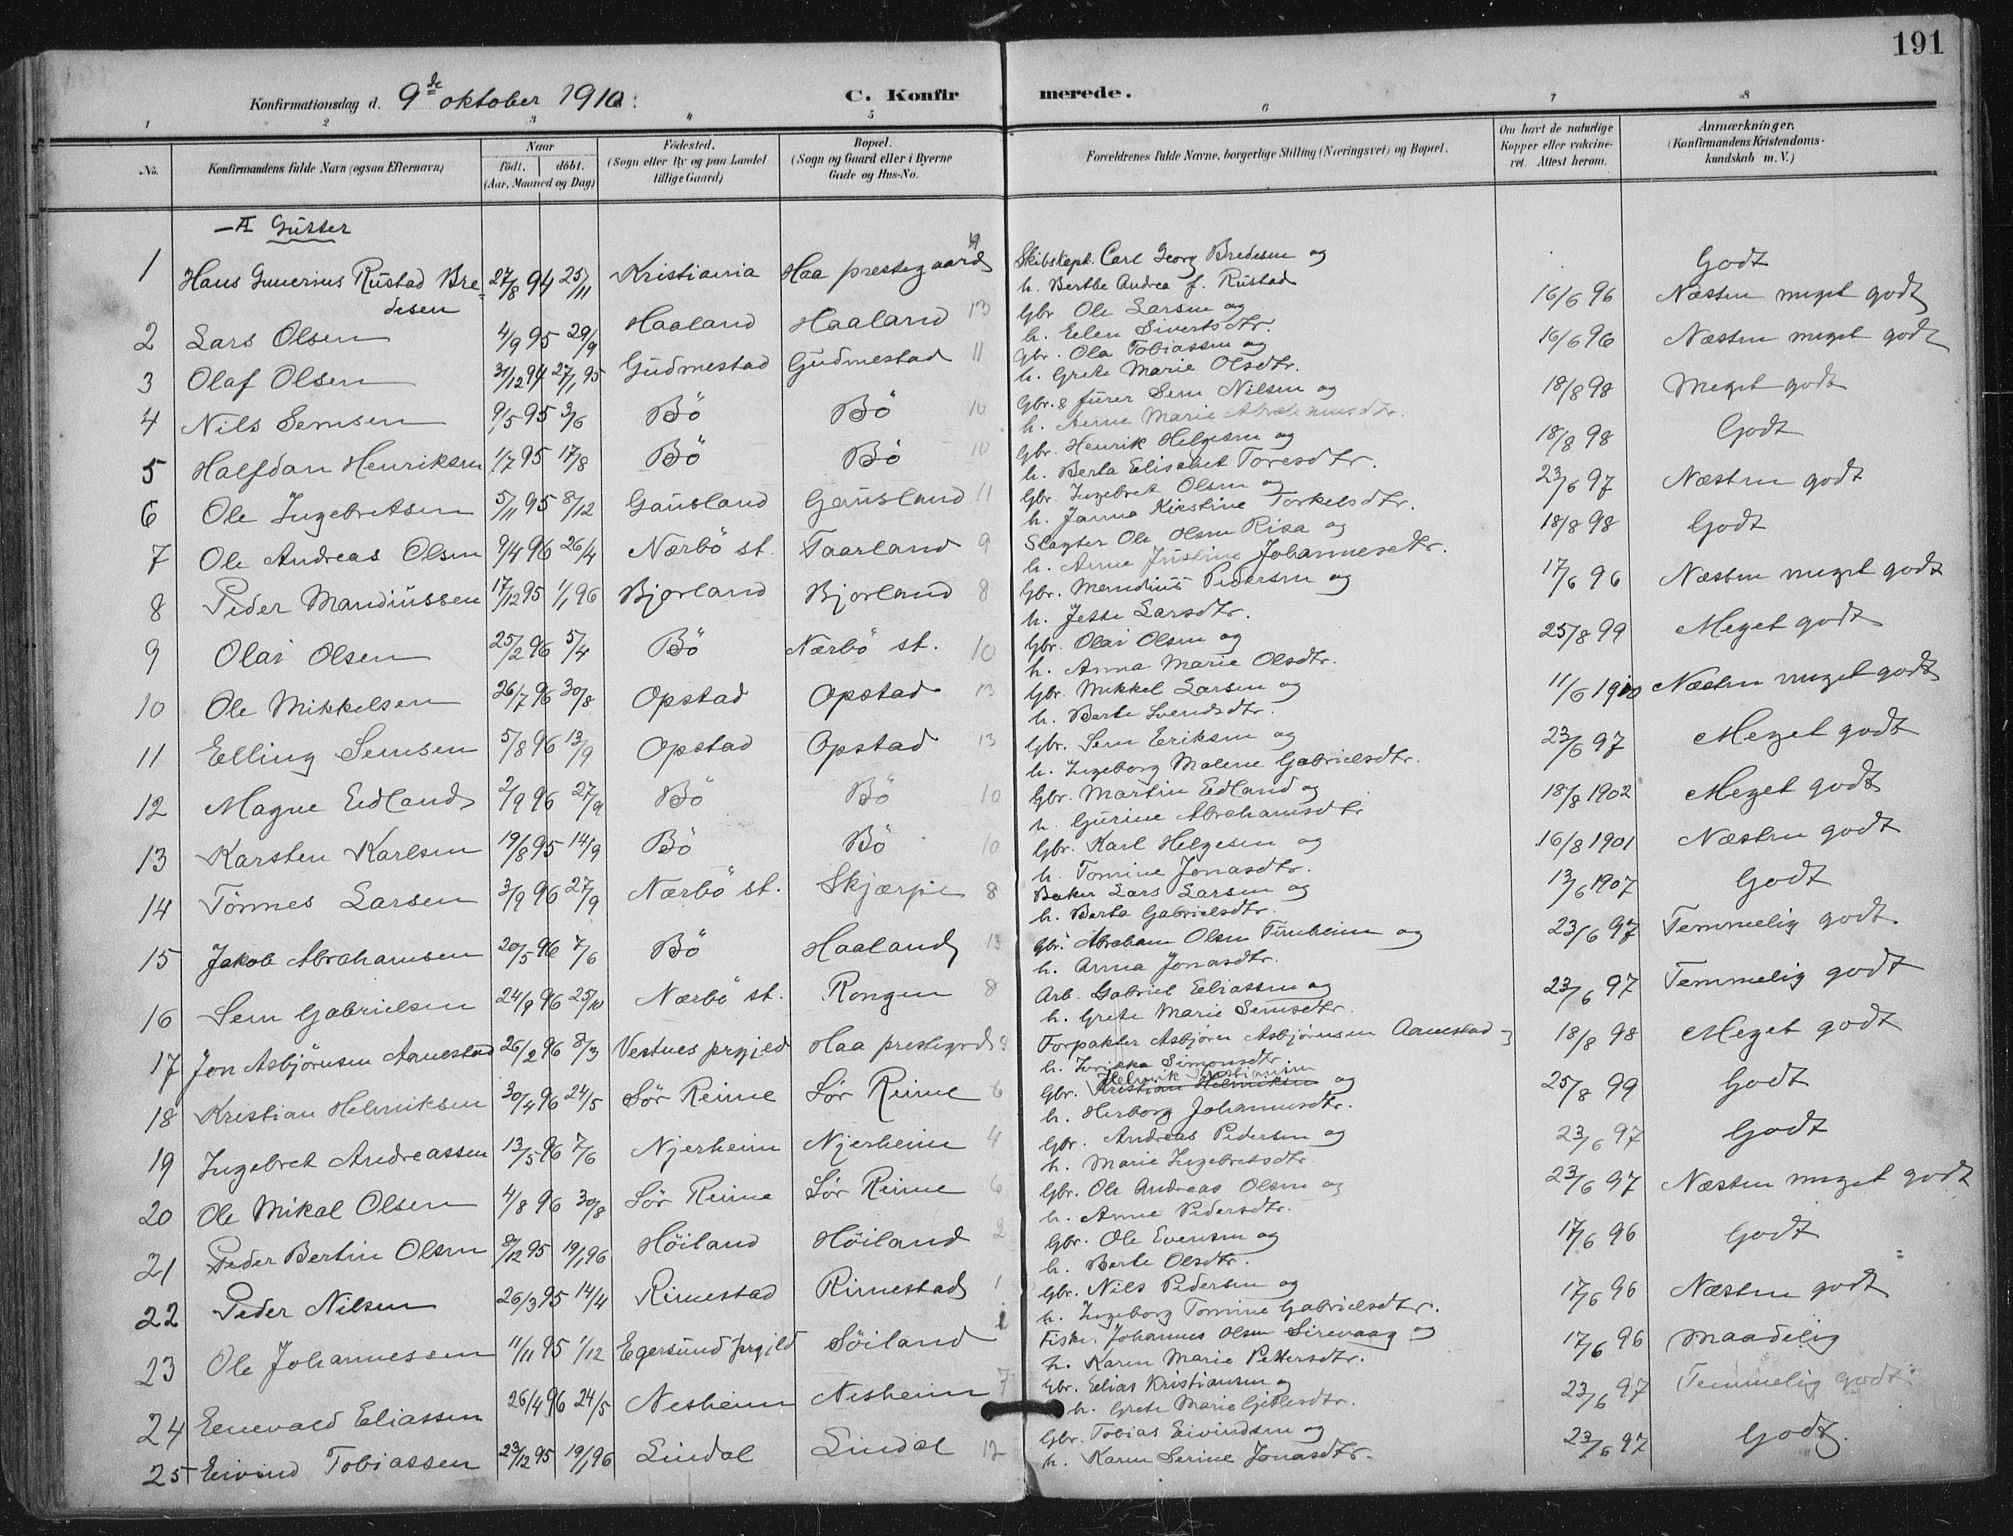 191
Konfirmationsdag d. 9de oktober 1910. C. Konfirmerede.
1 2 3 4 5 6 7 8
No. Konfirmandens fulde Navn (ogsaa Efternavn) Naar Födt. döbt. (Aar, Maaned og Dag) Födested. (Sogn eller By og paa Landet tillige Gaard) Bopæl. (Sogn og Gaard eller i Byerne Gade og Hus-No. Forældrenes fulde Navne, borgerlige Stilling (Næringsvei) og Bopæl. Om havt de naturlige Kopper eller vakcineret. Attest herom. Anmærkninger. (Konfirmandens Kristendomskundskab m. V.)
A Gutter
1 Hans Rustad Bredesen 27/8 94 25/11 Kristiania Haa prestegaard 9 Skibskapt. Carl Georg Bredesen og h. Berthe Andrea f. Rustad Godt
2 Lars Olsen 4/9 95 29/9 Haaland Haaland 13 Gbr. Ole Larsen og h. Elen Sivertsdtr. 16/6 96 Næsten meget godt
3 Olaf Olsen 31/12 94 27/1 95 Gudmestad Gudmestad 11 Gbr. Ola Tobiassen og h. Grete Marie Olsdtr. 16/6 96 Næsten meget godt
4 Nils Semsen 9/5 95 3/6 Bö Bö 10 Gbr. & furer Sem Nilsen og h. Anne Marie Abrahamsdtr. 18/8 98 Meget godt
5 Halfdan Henriksen 1/7 95 17/8 Bö Bö 10 Gbr. Henrik Helgesen og h. Berta Elisabet Toresdtr. 18/8 98 Godt
6 Ole Ingebretsen 5/11 95 8/12 Gausland Gausland 11 Gbr. Ingebret Olsen og h. Janna Kirstine Torkelsdtr. 23/6 97 Næsten godt
7 Ole Andreas Olsen 9/4 96 26/4 Nærbö st. Taarland 9 Slagter Ole Olsen Risa og h. Anne Justine Johannesdtr. 18/8 98 Godt
8 Peder Mandiussen 17/12 95 1/1 96 Bjorland Bjorland 8 Gbr. Mandius Pedersen og h. Jette Larsdtr. 17/6 96 Næsten meget godt
9 Olai Olsen 25/2 96 5/4 Bö Nærbö st. 10 Gbr. Olai Olsen og h. Anna Marie Olsdtr. 25/8 99 Meget godt
10 Ole Mikkelsen 26/7 96 30/8 Opstad Opstad 13 Gbr. Mikkel Larsen og h. Berte Svendsdtr. 11/6 1910 Næsten meget godt
11 Elling Semsen 5/8 96 13/9 Opstad Opstad 13 Gbr. Sem Eriksen og h. Ingeborg Malene Gabrielsdtr. 23/6 97 Meget godt
12 Magne Edland 2/9 96 27/9 Bö Bö 10 Gbr. Martin Edland og h. Gurine Abrahamsdtr 18/8 1902 Meget godt
13 Karsten Karlsen 19/8 95 14/9 Bö Bö 10 Gbr. Karl Helgesen og h. Tomine Jonasdtr. 16/8 1901 Næsten godt
14 Tönnes Larsen 3/9 96 27/9 Nærbö st. Skjærpe 8 Baker Lars Larsen og h. Berta Gabrielsdtr. 13/6 1907 Godt
15 Jakob Abrahamsen 20/5 96 7/6 Bö Haaland 13 Gbr. Abraham Olsen og h. Anna Jonasdtr. 23/6 97 Temmelig godt
16 Sem Gabrielsen 24/9 96 25/10 Nærbö st. Rongen 8 Arb. Gabriel Eliassen og h. Grete Marie Semsdtr. 23/6 97 Temmelig godt
17 Jon Asbjörnsen Aanestad 26/2 96 8/3 Vestnes prgjeld Haa prestegrd 9 Forpakter Asbjörn Asbjörnsen Aanestad og h. Simonsdtr. 18/8 98 Meget godt
18 Kristian Helmiksen 30/4 96 24/5 Sör Reime Sör Reime 6 Gbr. Helmik Kristiansen Kristian Helmiksen og h. Herborg Johannesdtr. 25/8 99 Godt
19 Ingebret Andreassen 13/5 96 7/6 Njerheim Njerheim 4 Gbr. Andreas Pedersen og h. Marie Ingebretsdtr. 23/6 97 Godt
20 Ole Mikal Olsen 4/8 96 30/8 Sör Reime Sör Reime 6 Gbr. Ole Andreas Olsen og h. Anne Pedersdtr. 23/6 97 Næsten meget godt
21 Peder Bertin Olsen 8/12 95 19/1 96 Höiland Höiland 2 Gbr. Ole Evensen og h. Berte Olsdtr. 17/6 96 Godt
22 Peder Nilsen 26/3 95 14/4 Rimestad Rimestad 1 Gbr. Nils Pedersen og h. Ingeborg Tomine Gabrielsdtr. 17/6 96 Næsten godt
23 Ole Johannessen 11/11 95 1/12 Egersund prgjld Söiland 2 Fisker. Johannes Olsen Sirevaag og h. Karen Marie Pettersdtr. 17/6 96 Maadelig
24 Enevald Eliassen 26/4 96 24/5 Nesheim Nesheim 7 Gbr. Elias Kristiansen og h. Grete Marie 23/6 97 Temmelig godt
25 Eivind Tobiassen 23/12 95 19/1 96 Lindal Lindal 12 Gbr. Tobias Eivindsen og h. Karen Serine Jonasdtr. 23/6 97 Godt.